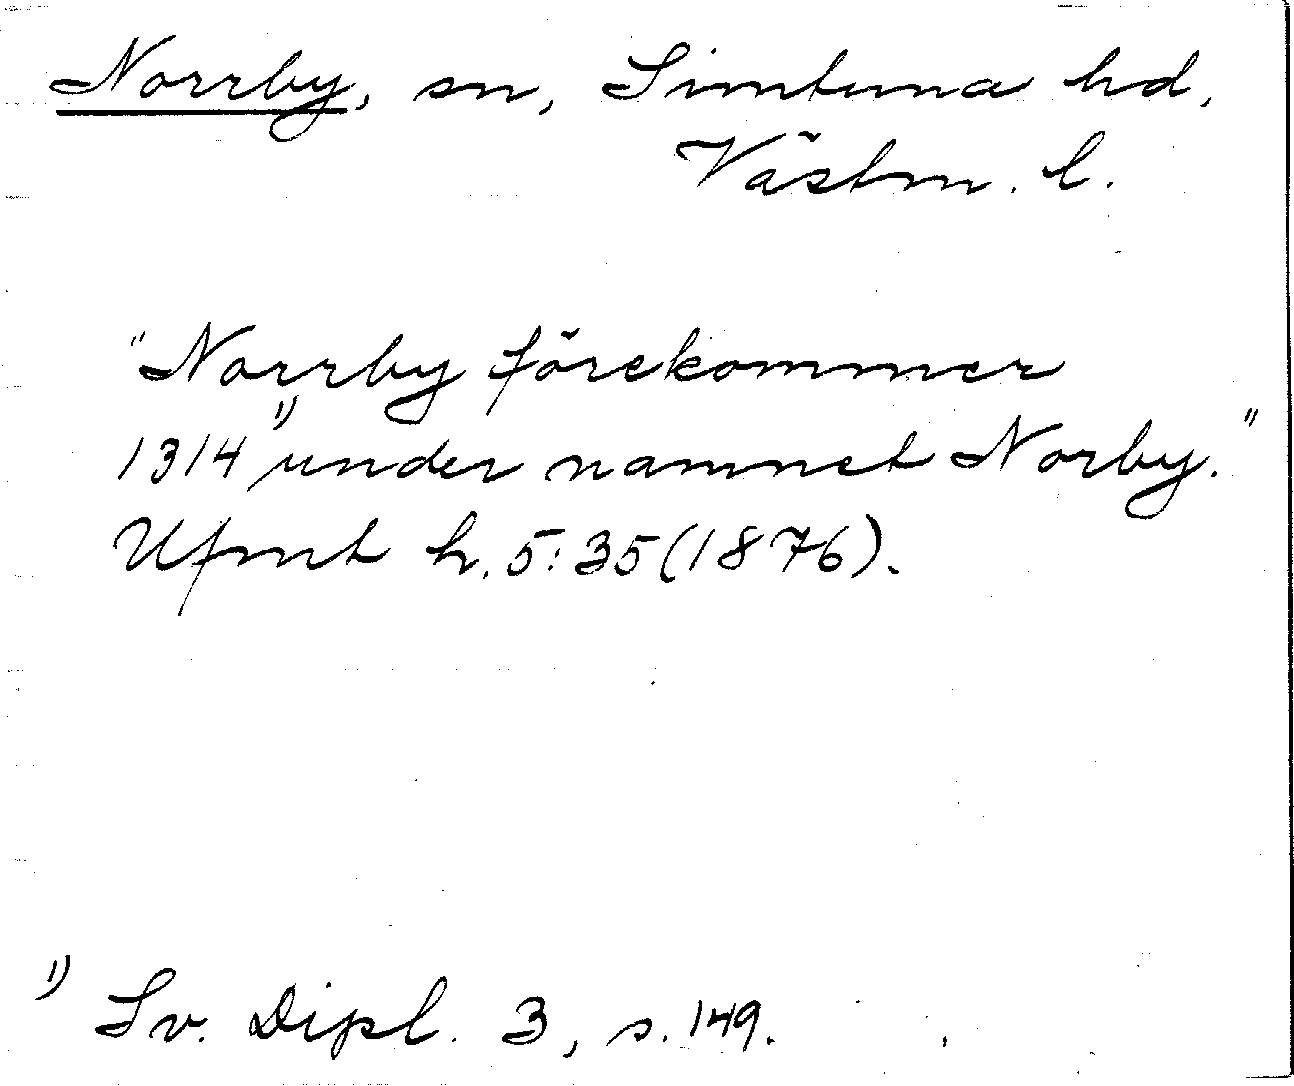 Norrby, sn, Simtuna hd,
Västm. l.
"Norrby förekommer
1314 1) under namnet Norby."
Ufmt h. 5:35 (1876).
1) Sv. Dipl. 3, s. 149.